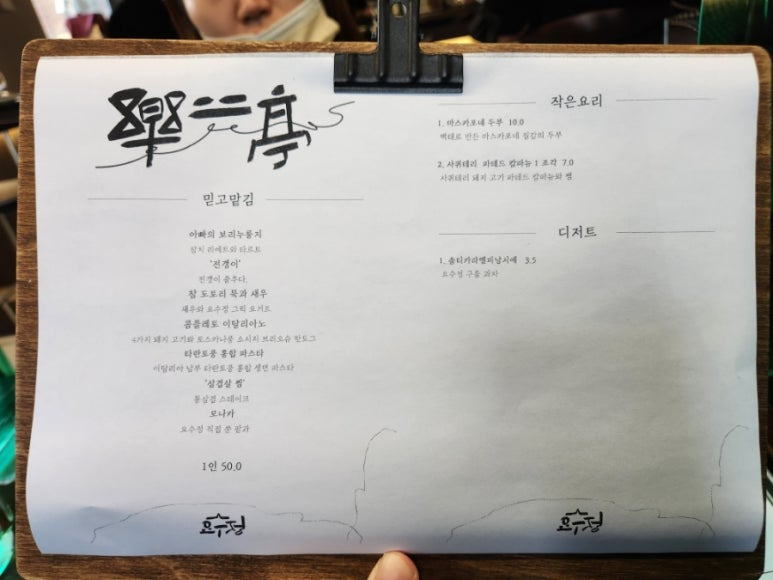 樂二亭
믿고맡김
아빠의 보리누룽지
참치 리예트와 타르트
'전갱이'
전갱이 춤추다.
참 도토리 묵과 새우
새우와 요수정 그릭 요거트
콤플레토 이탈리아노
4가지 돼지 고기와 토스카나풍 소시지 브리오슈 핫도그
타란토풍 홍합 파스타
이탈리아 남부 타란토풍 홍합 생면 파스타
'삼겹살 쌈'
통삼겹 스테이크
모나카
요수정 직접 쑨 팥과
1인 50.0
요수정
작은요리
1. 마스카포네 두부 10.0
백태로 만든 마스카포네 질감의 두부
2. 샤퀴테리 파테드 캄파뉴 1 조각 7.0
샤퀴테리 돼지 고기 파테드 캄파뉴와 쨈
디저트
1. 솔티카라멜피낭시에 3.5
요수정 구움 과자
요수정